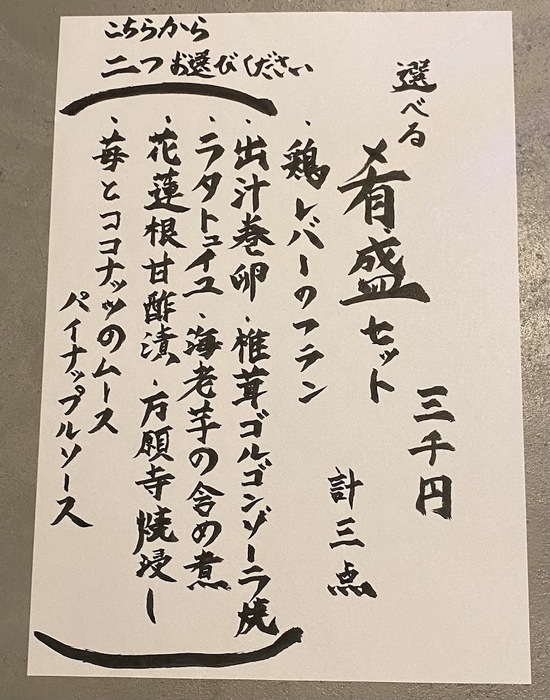 選べる
肴盛セット
三千円
計三点
こちらから
二つお選びください
・鶏レバーのフラン
・出汁巻卵・椎茸ゴルゴンゾーラ焼
・ラタトゥイユ・海老芋の含め煮
・花蓮根甘酢漬・万願寺焼浸し
・苺とココナッツのムース
パイナップルソース